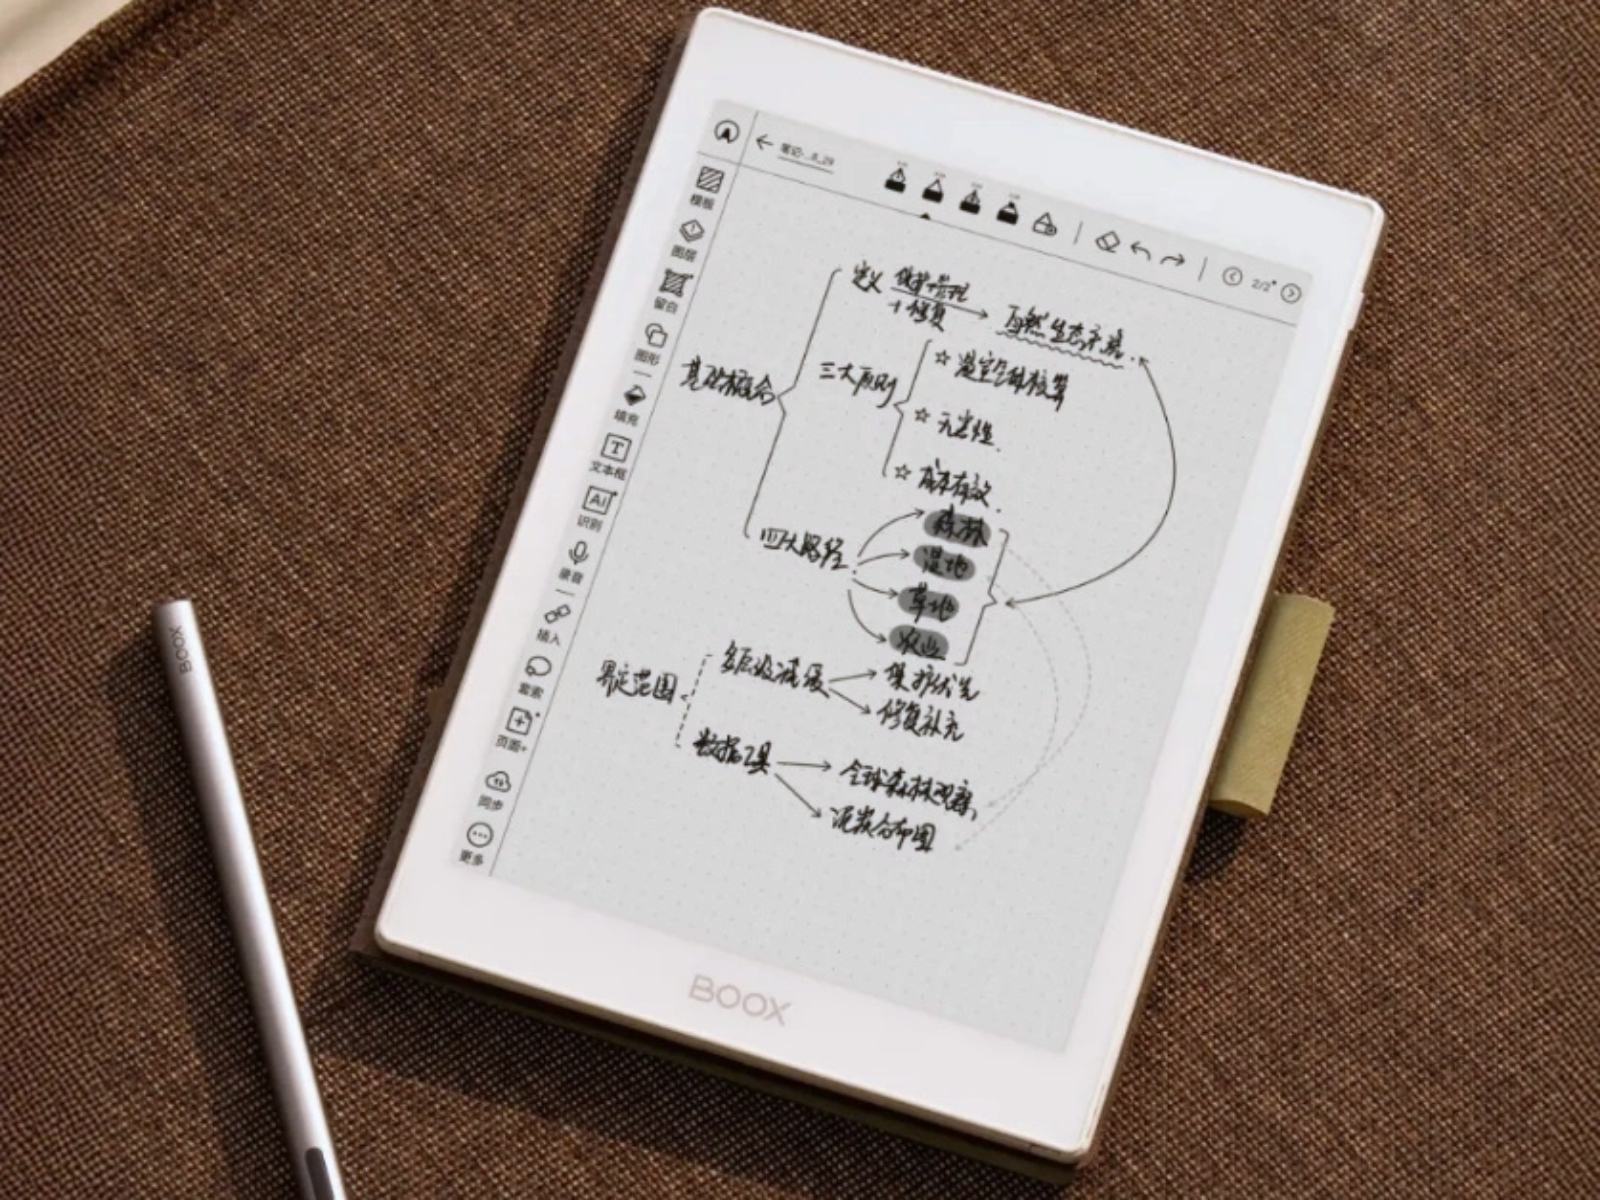 笔记-..8_29
2/2
模板
图层
留白
图形
填充
文本框
AI
识别
录音
插入
套索
页面+
同步
更多
定义 保护+管理
+修复 → 自然生态系统.
基础概念
三大原则
☆ 温室气体核算
☆ 无害性.
☆ 成本有效.
四大路径.
森林
湿地
草地
农业
界定范围
多层级减缓
保护优先
修复补充
数据工具
全球森林观察,
泥炭分布图
BOOX
BOOX